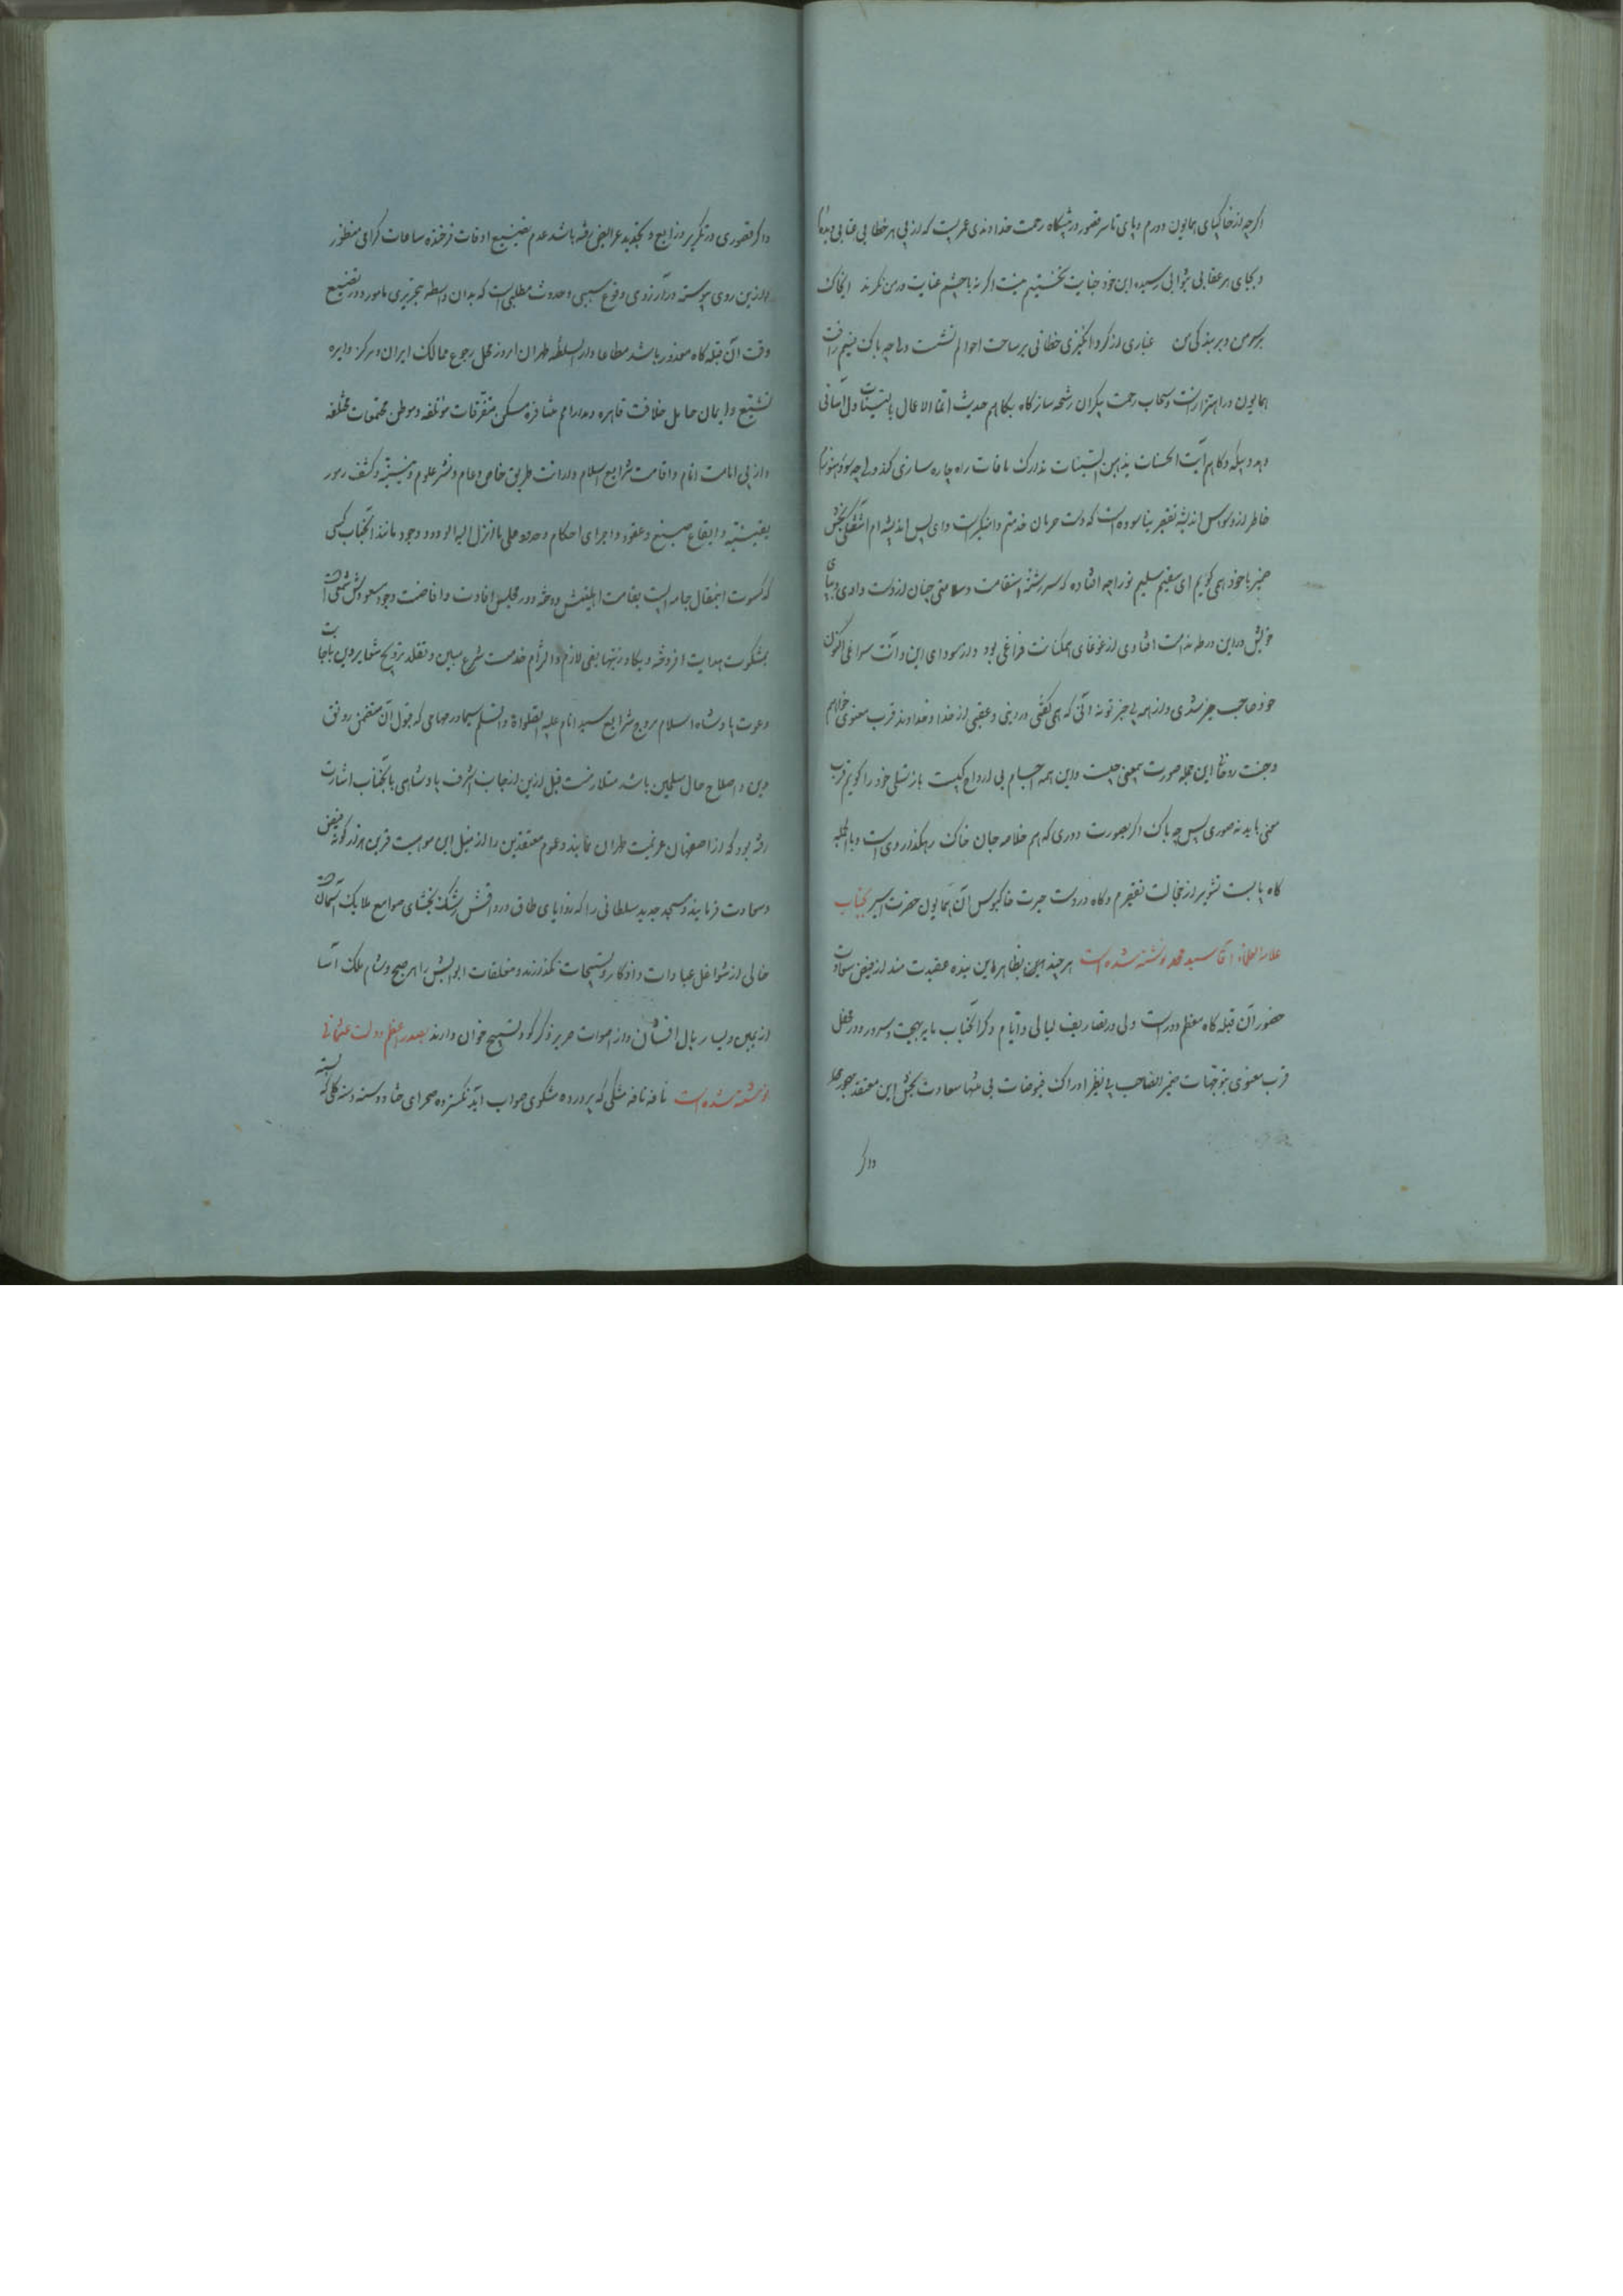 اگرچه از خاکپای همایون دورم و پای تا سر قصور در پیشگاه رحمت خداوندی عمریست که از پی هر خطا بی عتابی دیده‌ام
و بجای هر عقابی ثوابی رسیده این خود جنایت نخستینم نیست اگر نه باچشم عنایت در من نگرند ای خاک
بر سر من و بر بندگی من غباری از گرد انگیزی خطائی بر ساحت احوالم نشست ولی چه باک نسیم رافت
همایون در اهتزاز است و سحاب رحمت بیکران رشحه ساز گاه بگاهم حدیث انما الاعمال بالنیات دل آسائی
دهد و بیگه و گاهم آیت الحسنات یذهبن السیئات بتدارک مافات راه چاره سازی گذارد ولی چه سود هنوزم
خاطر از وسواس اندیشه تقصیر نیاسوده است که دست حرمان خدمتم دامنگیر است و ای بس اندیشه‌ام آشفتگی بخش
ضمیر با خود همی گویم ای سقیم سلیم تو را چه افتاده که سررشته استقامت و سلامتی چنان از دست دادی و بپای
خویش در این ورطه ندامت افتادی از غوغای همگنانت فراغی بود و از سودای این و آنت سراغی اکنون
خود صاحب خبر شدی و از همه بی خبر تو نه آنی که همی گفتی در دینی و عقبی از خدا و خداوند قرب معنوی خواهم
و جنت روحانی این جمله صورت بیمعنی چیست و این همه اجسام بی ارواح کیست باز تسلی خود را گویم قرب
معنی باید نه صوری پس چه باک اگر بصورت دوری که هم خلاصه جان خاک رهگذار وی است و بالجمله
گاه پا بست تشویر از خجالت تقصیرم و گاه در دست حیرت خاکبوس آن همایون حضرت اسیر بجناب
علامة العلمائی آقا سید محمد نوشته شده است هر چند همین بظاهر این بنده عقیدت مند از فیض سعادت
حضور آن قبله گاه معظم دور است ولی در تصاریف لیالی و ایام ذکر آنجناب مایه بهجت و سرور و در محفل
قرب معنوی بتوجهات ضمیر الصاحب بی نظیر ادراک فیوضات بی منتها سعادت بخش این معتقد مهجور
و اگر
و اگر قصوری در تکریر ذرایع و تجدید عرایض رفته باشد عدم تضییع اوقات فرخنده ساعات گرامی منظور
و از این روی پیوسته در آرزوی وقوع سببی و حدوث مطلبی است که بدان واسطه بتحریری مامور و در تضییع
وقت آن قبله گاه معذور باشد مطاعا دار السلطنه طهران امروز محل رجوع ممالک ایران و مرکز دایره
تشیع و ایمان حامل خلافت قاهره و مدار مشاقره مسکن متفرقات مؤتلفه و موطن مجتمعات مختلفه
و از پی انامت انام و اقامت شرایع اسلام و ارائت طریق خاص و عام و نشر علوم دینیه و کشف رموز
یقینیه و ایقاع صیغ و عقود و اجرای احکام و حدود علی ما انزل الیه الودود وجود مانند آنجناب کسی
که کسوت این مقال جامه ایست بقامت اهلیتش دوخته و در مجلس افادت و افاضت وجود مسعودش شمعی است
بمشکوت هدایت افروخته و بیگاه و بیگه بغی لازم و الزام خدمت شرع مبین و تقلد ترویج شعایر دین باجابت
دعوت پادشاه اسلام مروج شرایع سید انام علیه الصلوة و السلم سیما در مهامی که قبول آن متضمن رونق
دین و اصلاح حال مسلمین باشد مثلا رفت قبل از این از جانب اشرف پادشاهی بآنجناب اشارت
رفته بود که از اصفهان عزیمت طهران نمایند و عموم معتقدین را از نیل این موهبت قرین هزار گونه فیض
و سعادت فرمایند و مسجد جدید سلطانی را که زوایای طاق و رواقش رشک بخشای صوامع ملایک آسمان است
خالی از شواغل عبادات و اذکار و تسبیحات نگذارند و معلقات ابوابش را هر صبح و شام ملک آسا
از یمین و یسار بال افشان و از اصوات صریر ذکر گو و تسبیح خوان دارند بصدر اعظم دولت عثمانی
نوشته شده است نافه نافه مشکی که پرورده مشکوی صواب آید نکسترده صحرای خطا و دسته دسته گلی که بسته